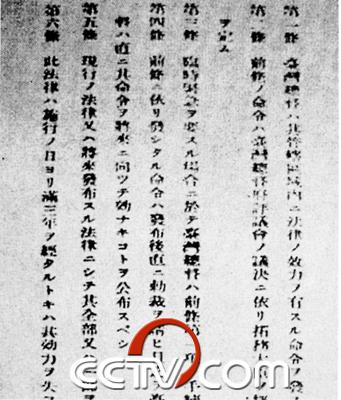 第一條 臺灣總督ハ其管轄區域内ニ法律ノ效力ヲ有スル命令ヲ發
前條ノ命令ハ臺灣總督府評議會ノ議決ニ依リ拓務大
第三條 臨時緊急ヲ要スル場合ニ於テ臺灣總督ハ前條第一項ノ手
第四條 前條ニ依リ發シタル命令ハ發布後直ニ勅裁ヲ請ヒ且
督ハ直ニ其命令ヲ將來ニ向テ效力ナキコトヲ公布スベシ
第五條 現行ノ法律又ハ將來發布スル法律ニシテ其全部又ハ
第六條 此法律ハ施行ノ日ヨリ滿三年ヲ經タルトキハ其效力ヲ失フ
CCTV.com